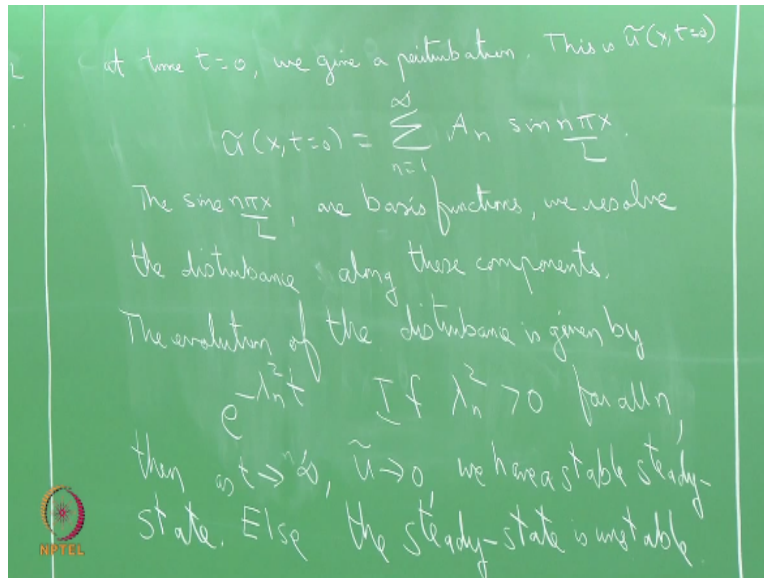 at time t=0, we give a perturbation. This is ũ(x,t=0)
ũ(x,t=0) = ∞ Σ n=1 An sin nπx/L.
The sine nπx/L, are basis functions, we resolve
the disturbance along these components.
The evolution of the disturbance is given by
e^-λn²t If λn² >0 for all n,
then as t→∞, ũ→0, we have a stable steady-
state. Else the steady-state is unstable.
NPTEL